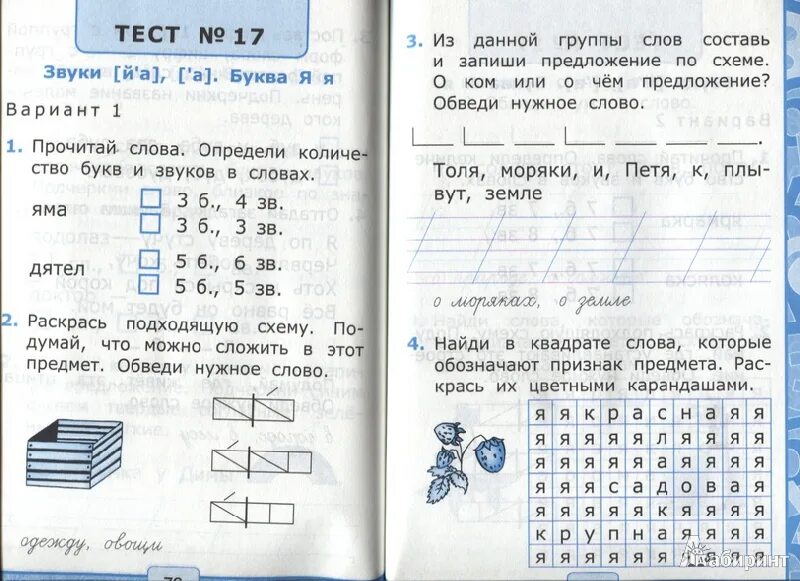 ТЕСТ № 17
Звуки [й'а], ['а]. Буква Я я
Вариант 1
1. Прочитай слова. Определи количе-
ство букв и звуков в словах.
яма
3 б., 4 зв.
3 б., 3 зв.
дятел
5 б., 6 зв.
5 б., 5 зв.
2. Раскрась подходящую схему. По-
думай, что можно сложить в этот
предмет. Обведи нужное слово.
одежду, овощи
3. Из данной группы слов составь
и запиши предложение по схеме.
О ком или о чём предложение?
Обведи нужное слово.
Толя, моряки, и, Петя, к, плы-
вут, земле
о моряках, о земле
4. Найди в квадрате слова, которые
обозначают признак предмета. Рас-
крась их цветными карандашами.
я я к р а с н а я я
я я я я я л я я я я
я я я я я а я я я я
я я я с а д о в а я
я я я я я к я я я я
к р у п н а я я я я
я я я я я я я я я я
Лабиринт